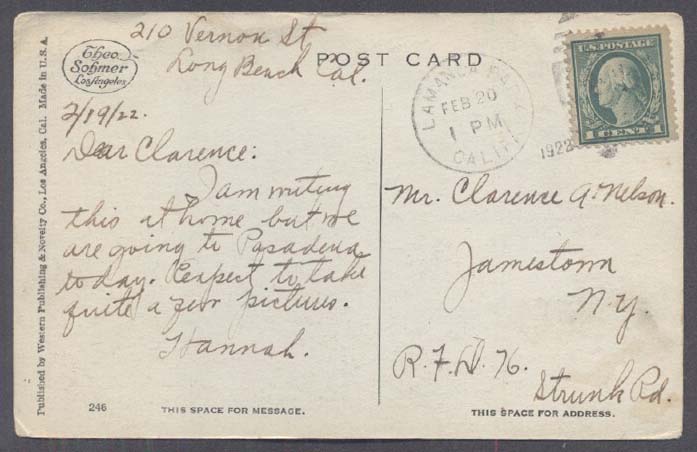 210 Vernon St
Long Beach Cal.
Theo
Sohmer
Los Angeles
POST CARD
U.S. POSTAGE
1 CENT 1
LAMANDA PARK
FEB 20
1 PM
CALIF.
1922
2/19/22.
Dear Clarence:
I am writing
this at home but we
are going to Pasadena
today. Expect to take
quite a few pictures.
Hannah.
Mr. Clarence A. Nelson.
Jamestown
N.Y.
R.F.D. 76.
Strunk Rd.
Published by Western Publishing & Novelty Co., Los Angeles, Cal. Made in U.S.A.
246
THIS SPACE FOR MESSAGE.
THIS SPACE FOR ADDRESS.